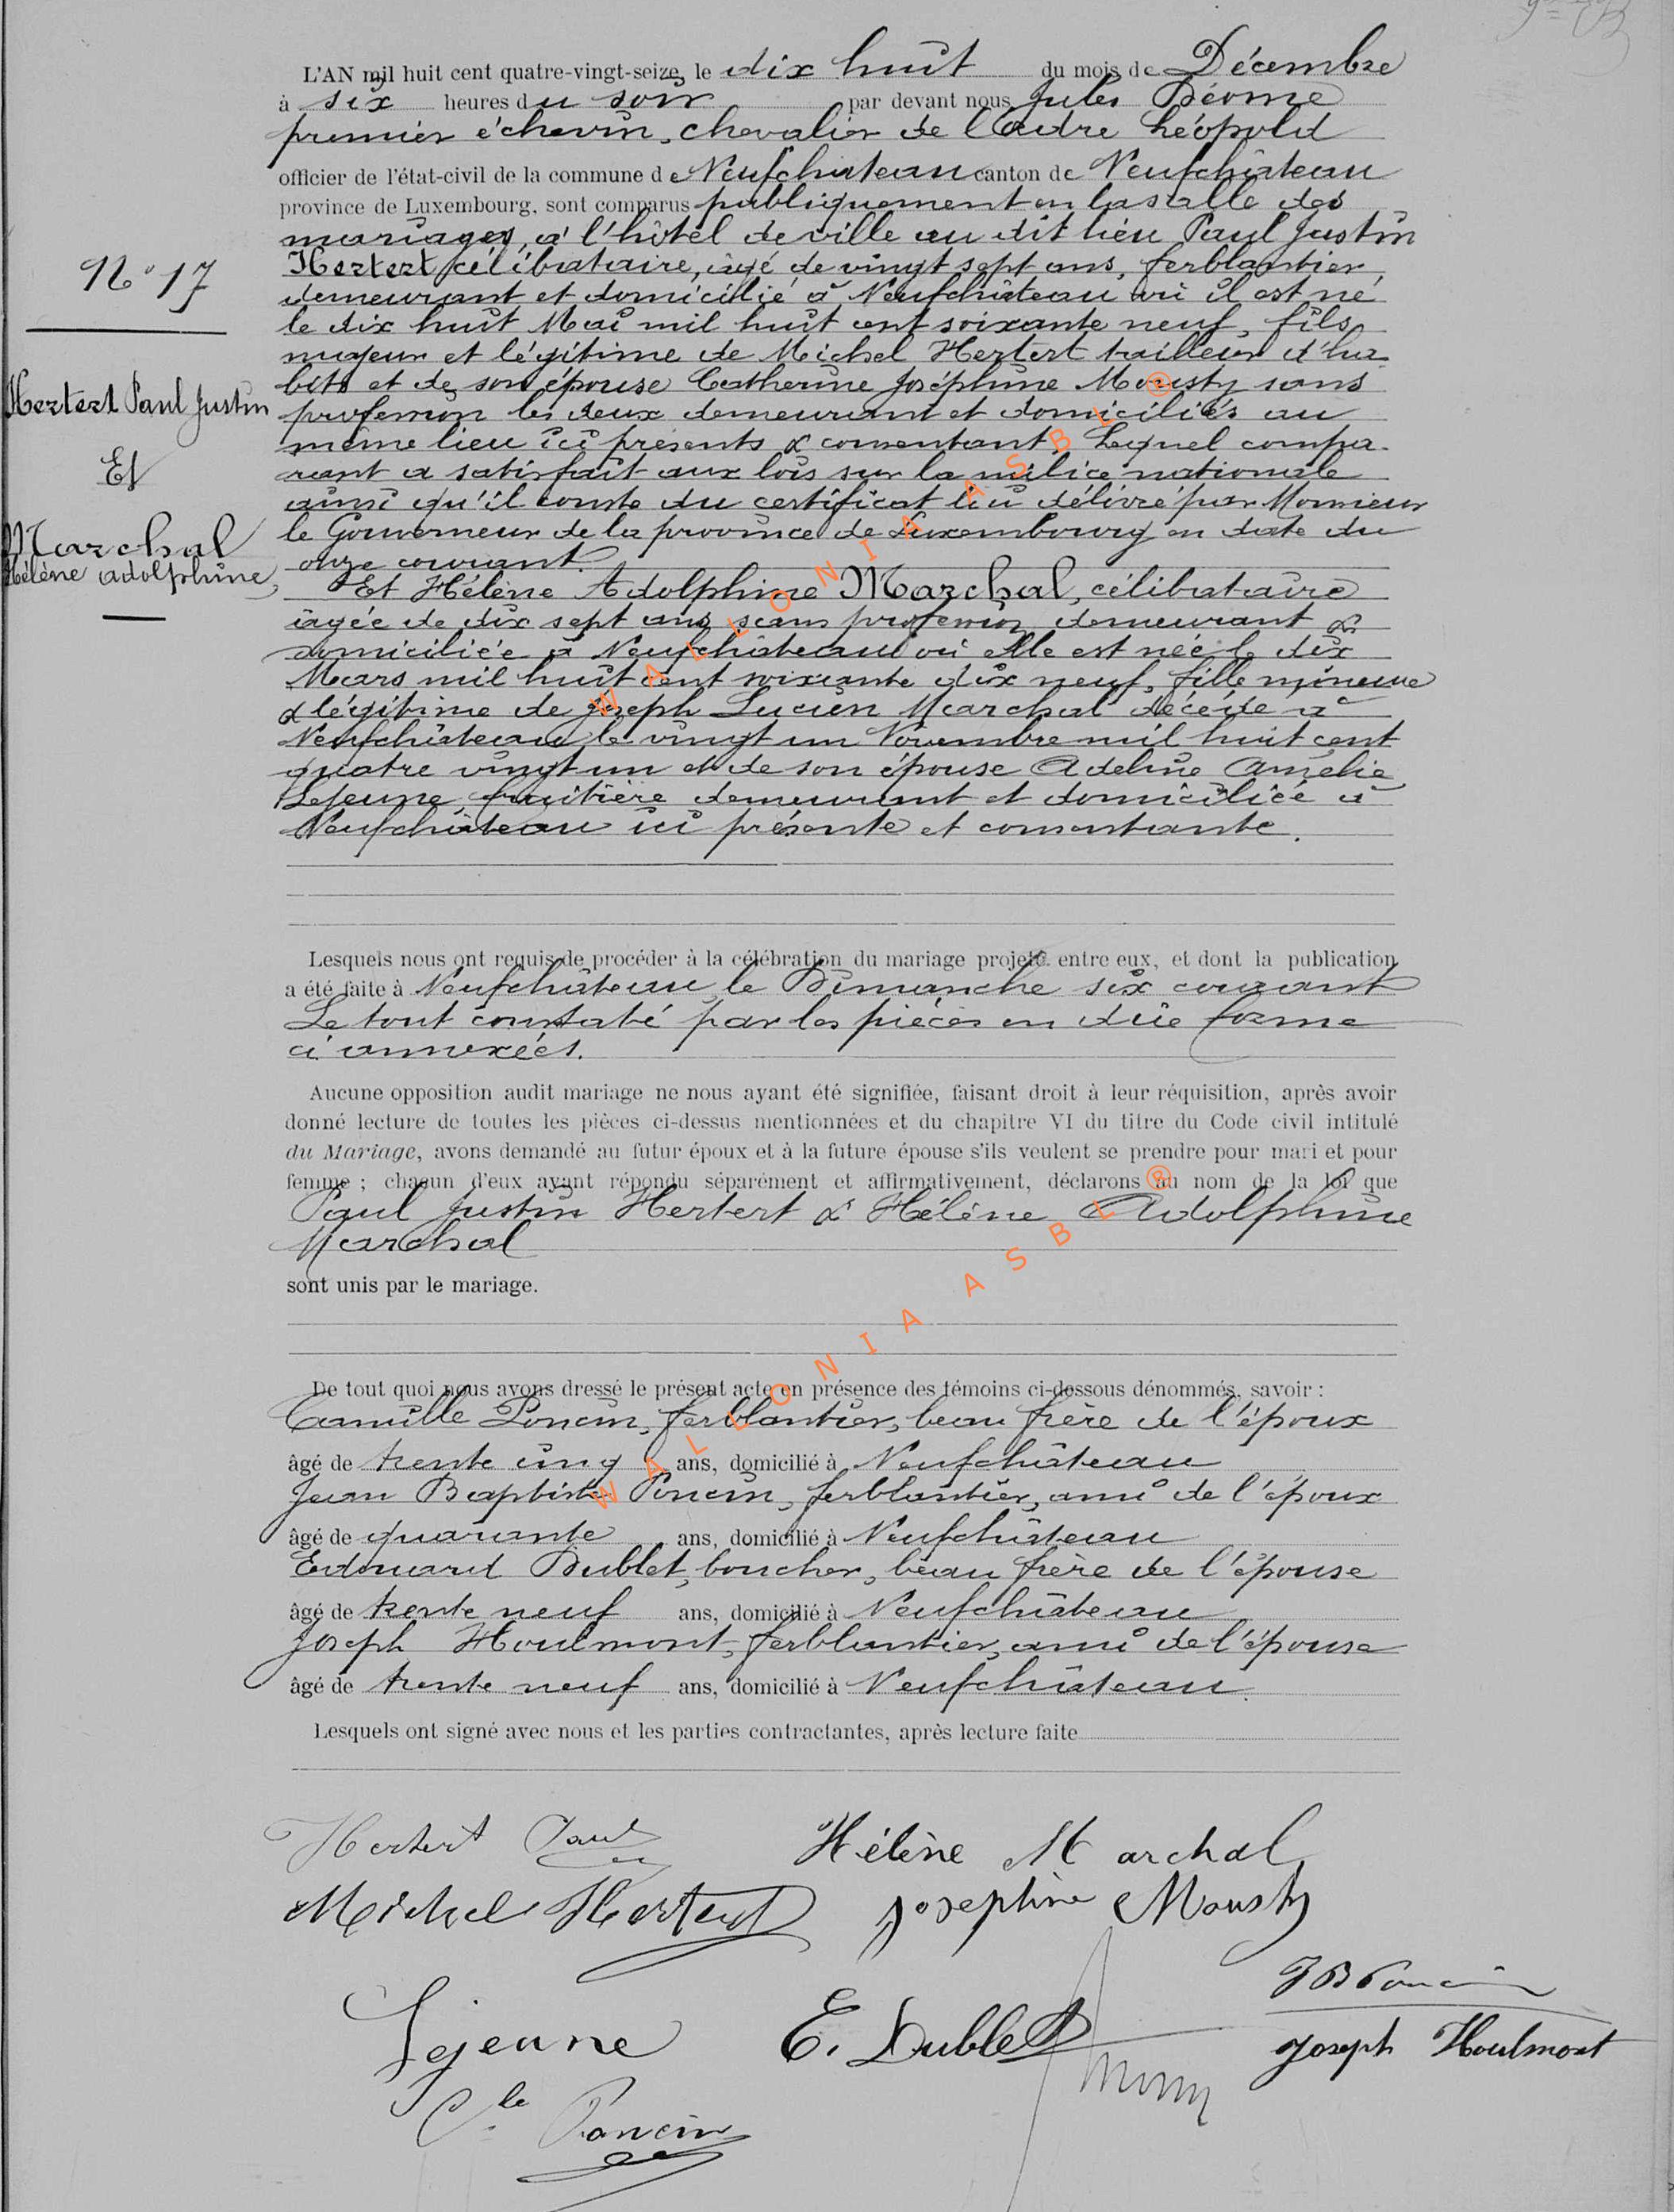 L'AN mil huit cent quatre-vingt-seize, le dix huit du mois de Décembre
à six heures du soir par devant nous Jules Déome
premier échevin, chevalier de l'Ordre Léopold
officier de l'état-civil de la commune de Neufchâteau canton de Neufchâteau
province de Luxembourg, sont comparus publiquement en la salle des
mariages, à l'hôtel de ville au dit lieu Paul Justin
Hertert célibataire, âgé de vingt sept ans, ferblantier,
demeurant et domicilié à Neufchâteau où il est né
le dix huit Mai mil huit cent soixante neuf, fils
majeur et légitime de Michel Hertert tailleur d'ha-
bits et de son épouse Catherine Joséphine Mousty sans
profession les deux demeurant et domiciliés au
même lieu ici présents & consentant. Lequel compa-
rant a satisfait aux lois sur la milice nationale
ainsi qu'il conste du certificat lui délivré par Monsieur
le Gouverneur de la province de Luxembourg en date du
onze courant.
Et Hélène Adolphine Marchal, célibataire
âgée de dix sept ans, sans profession, demeurant &
domiciliée à Neufchâteau où elle est née le dix
Mars mil huit cent soixante dix neuf, fille mineure
& légitime de Joseph Lucien Marchal décédé à
Neufchâteau le vingt un Novembre mil huit cent
quatre vingt un et de son épouse Adeline Amélie
Lejeune, fruitière demeurant et domiciliée à
Neufchâteau ici présente et consentante.
N° 17
Hertert Paul Justin
Et
Marchal
Hélène Adolphine,
Lesquels nous ont requis de procéder à la célébration du mariage projeté entre eux, et dont la publication
a été faite à Neufchâteau, le Dimanche six courant
Le tout constaté par les pièces en dûe forme
ci annexées.
Aucune opposition audit mariage ne nous ayant été signifiée, faisant droit à leur réquisition, après avoir
donné lecture de toutes les pièces ci-dessus mentionnées et du chapitre VI du titre du Code civil intitulé
du Mariage, avons demandé au futur époux et à la future épouse s'ils veulent se prendre pour mari et pour
femme ; chacun d'eux ayant répondu séparément et affirmativement, déclarons au nom de la loi que
Paul Justin Hertert & Hélène Adolphine
Marchal
sont unis par le mariage.
De tout quoi nous avons dressé le présent acte en présence des témoins ci-dessous dénommés, savoir :
Camille Poncin, ferblantier, beau frère de l'époux
âgé de trente cinq ans, domicilié à Neufchâteau
Jean Baptiste Poncin, ferblantier, ami de l'époux
âgé de quarante ans, domicilié à Neufchâteau
Edouard Dublet, boucher, beau frère de l'épouse
âgé de trente neuf ans, domicilié à Neufchâteau
Joseph Houlmont, ferblantier, ami de l'épouse
âgé de trente neuf ans, domicilié à Neufchâteau.
Lesquels ont signé avec nous et les parties contractantes, après lecture faite
Hertert Paul
Hélène Marchal
Michel Hertert
Josephine Mousty
JB Poncin
Lejeune
E. Dublet
Joseph Houlmont
Clle Poncin
WALLONIA ASBL ®
WALLONIA ASBL ®